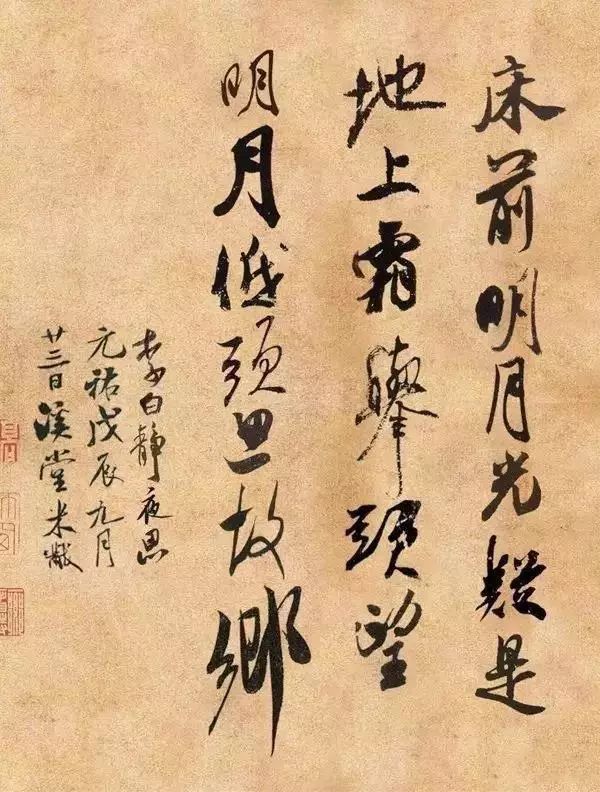 床前明月光疑是
地上霜舉頭望
明月低頭思故鄉
李白靜夜思
元祐戊辰九月
廿三日溪堂米黻